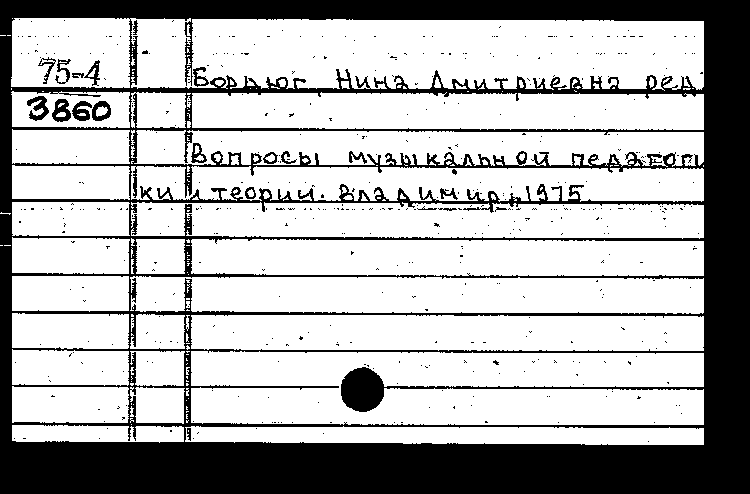 75-4
3860
Бордюг, Нина Дмитриевна ред.
Вопросы музыкальной педагоги
ки и теории. Владимир, 1975.